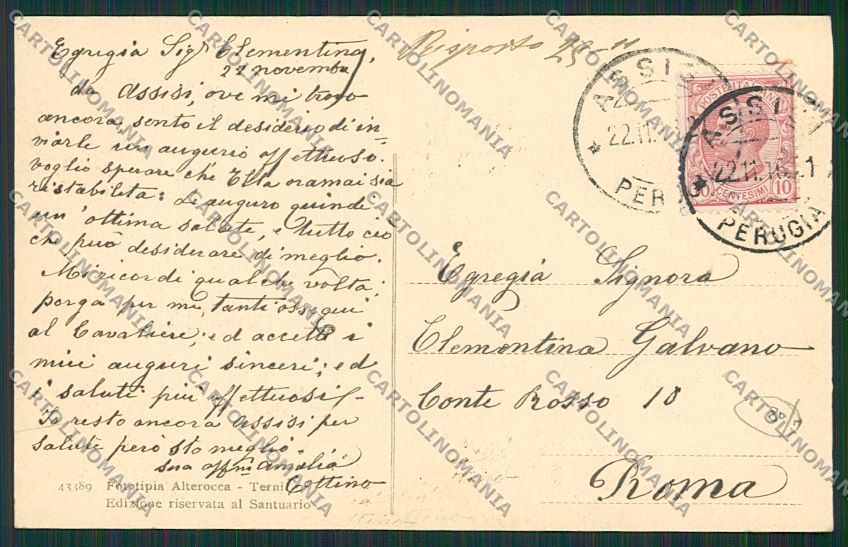 Egregia Sigra Clementina,
21 novembre
da Assisi, ove mi trovo
ancora, sento il desiderio di in-
viarle un augurio affettuoso.
voglio sperare che Ella oramai sia
ristabilita: Le auguro quindi
un'ottima salute, e tutto ciò
che può desiderare di meglio.
Mi ricordi qualche volta,
porga per me, tanti ossequi
al Cavaliere, ed accetti i
miei auguri sinceri; ed
i saluti più affettuosi-
Io resto ancora Assisi per
salute però sto meglio.
sua affma Amalia
Cottino
43389 Fototipia Alterocca - Terni
Edizione riservata al Santuario
Risposto 25-11
ASSISI
22.11.
PERUGIA
POSTE ITALIANE
10 CENTESIMI 10
ASSISI
22.11.16.21
PERUGIA
Egregia Signora
Clementina Galvano
Conte Rosso 18
Roma
CARTOLINOMANIA